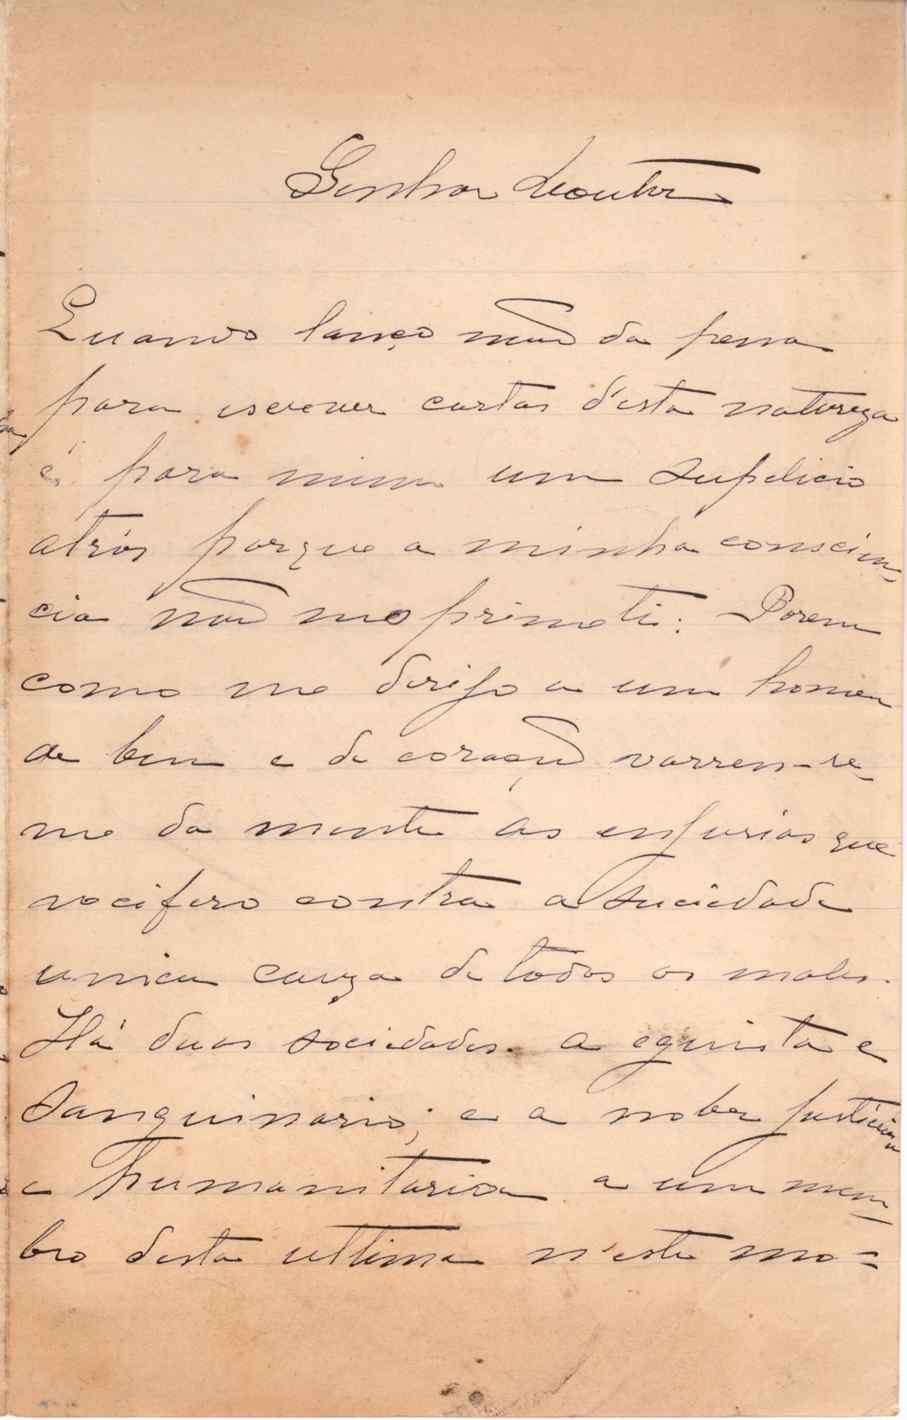 Senhor Doutor
Quando lanço mão da penna
para escrever cartas d'esta natureza
é para mim um suplicio
atrós porque a minha conscien-
cia não mo primeti. Porem
como me dirijo a um homem
de bem e de coração varrem-se-
me da mente as enjurias que
vocifero contra a suciedade
unica cauza de todos os males.
Há duas sociedades a eguista e
sanguinaria; e a nober justiceira
e humanitaria a um mem-
bro desta ultima n'este mo=